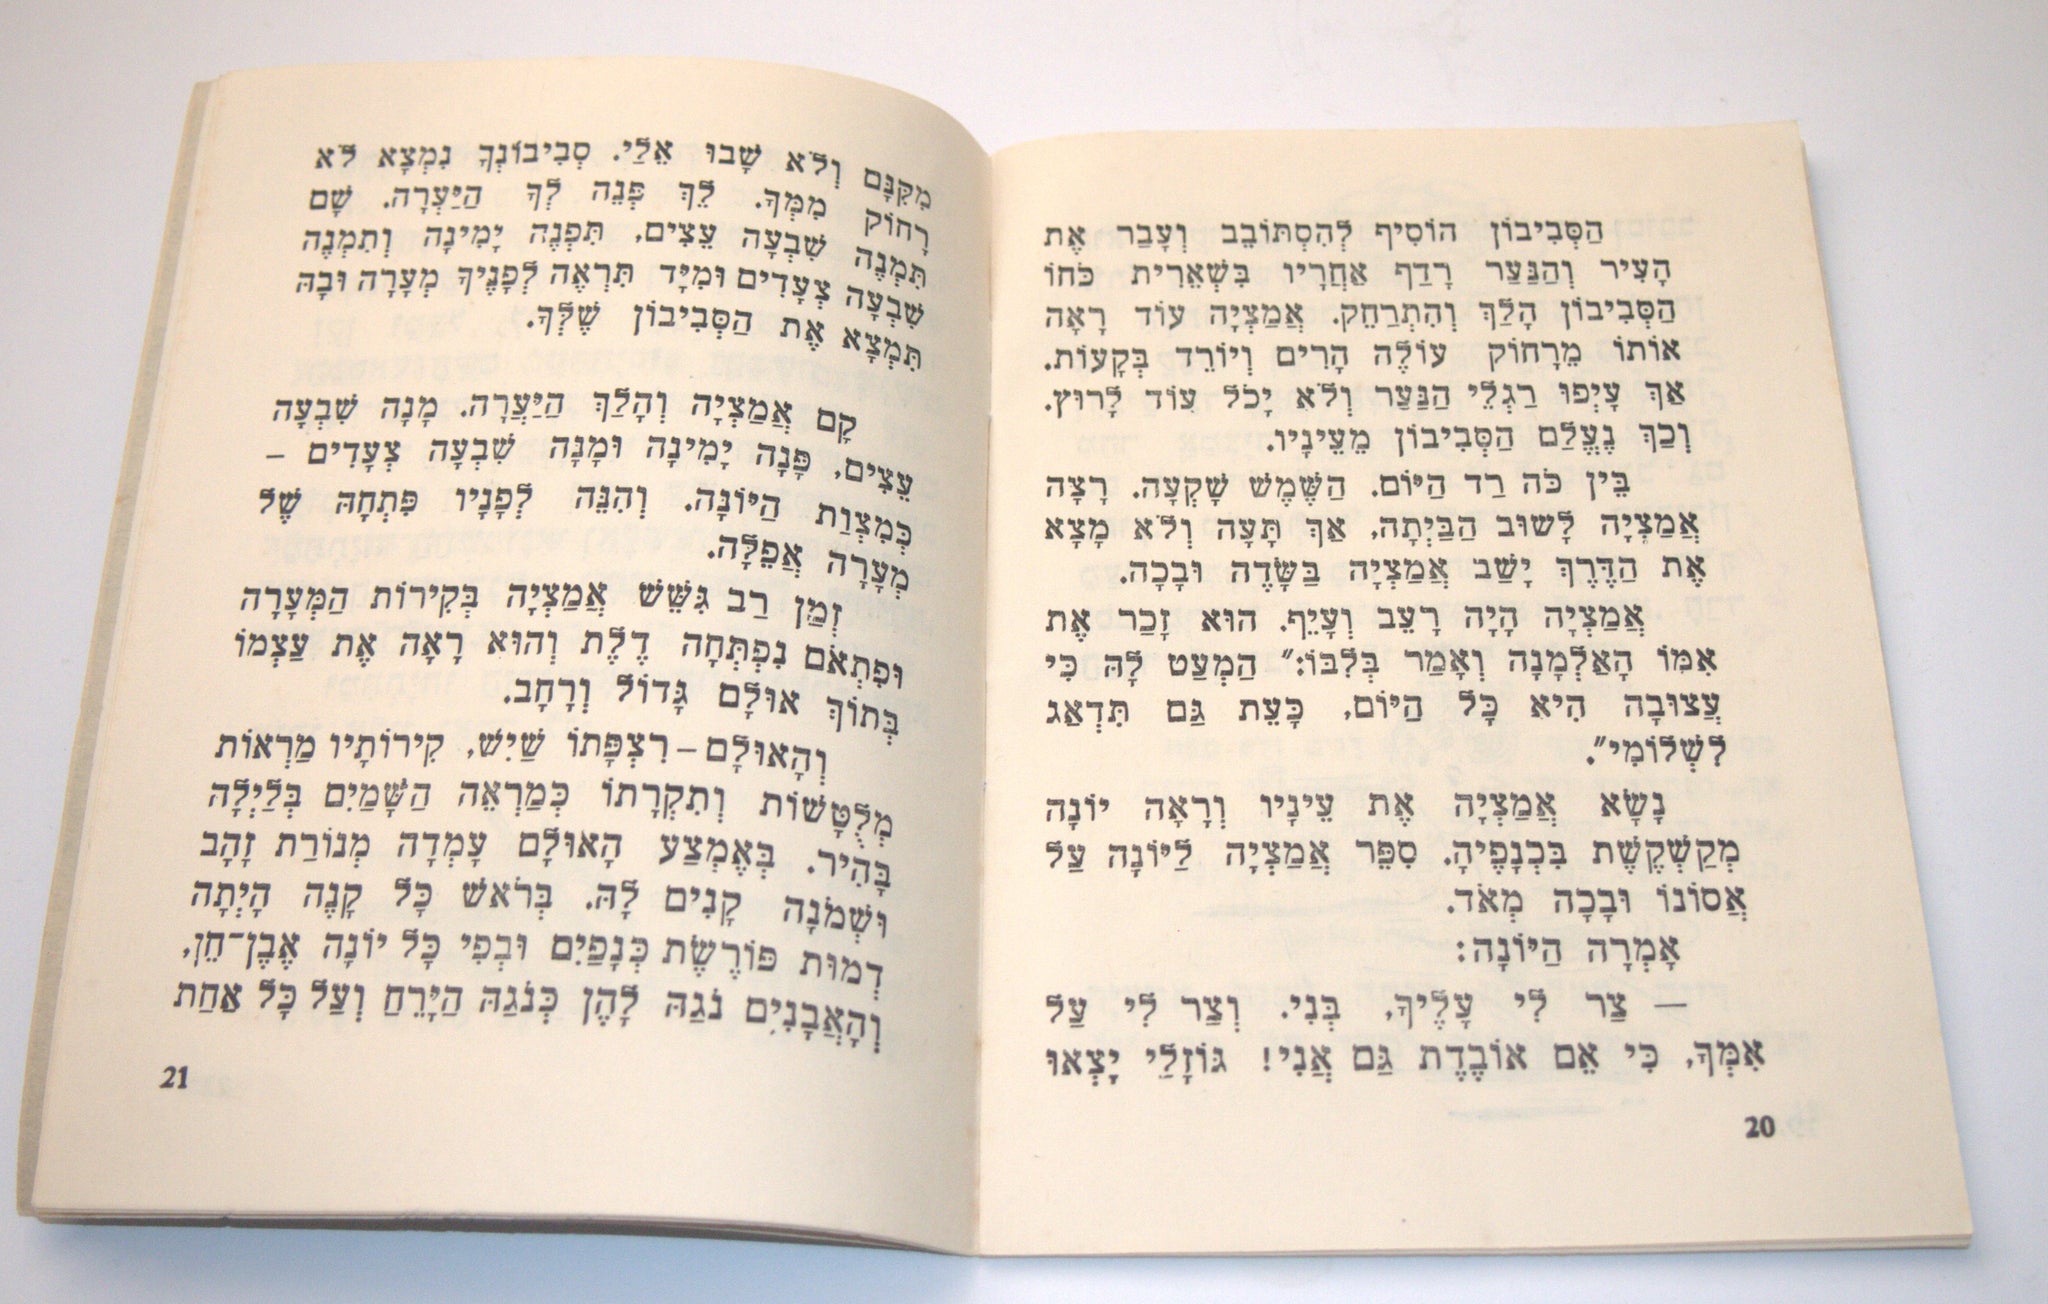 הַסְּבִיבוֹן הוֹסִיף לְהִסְתּוֹבֵב וְעָבַר אֶת
הָעִיר וְהַנַּעַר רָדַף אַחֲרָיו בִּשְׁאֵרִית כֹּחוֹ
הַסְּבִיבוֹן הָלַךְ וְהִתְרַחֵק. אֲמַצְיָה עוֹד רָאָה
אוֹתוֹ מֵרָחוֹק עוֹלֶה הָרִים וְיוֹרֵד בְּקָעוֹת.
אַךְ עָיְפוּ רַגְלֵי הַנַּעַר וְלֹא יָכֹל עוֹד לָרוּץ.
וְכַךְ נֶעֱלַם הַסְּבִיבוֹן מֵעֵינָיו.
בֵּין כֹּה רַד הַיּוֹם. הַשֶּׁמֶשׁ שָׁקְעָה. רָצָה
אֲמַצְיָה לָשׁוּב הַבַּיְתָה, אַךְ תָּעָה וְלֹא מָצָא
אֶת הַדֶּרֶךְ יָשַׁב אֲמַצְיָה בַּשָּׂדֶה וּבָכָה.
אֲמַצְיָה הָיָה רָעֵב וְעָיֵף. הוּא זָכַר אֶת
אִמּוֹ הָאַלְמָנָה וְאָמַר בְּלִבּוֹ:״ הַמְעַט לָהּ כִּי
עֲצוּבָה הִיא כָּל הַיּוֹם, כָּעֵת גַּם תִּדְאַג
לִשְׁלוֹמִי״.
נָשָׂא אֲמַצְיָה אֶת עֵינָיו וְרָאָה יוֹנָה
מְקַשְׁקֶשֶׁת בִּכְנָפֶיהָ. סִפֵּר אֲמַצְיָה לַיּוֹנָה עַל
אֲסוֹנוֹ וּבָכָה מְאֹד.
אָמְרָה הַיּוֹנָה:
— צַר לִי עָלֶיךָ, בְּנִי. וְצַר לִי עַל
אִמְּךָ, כִּי אֵם אוֹבֶדֶת גַּם אֲנִי! גּוֹזָלַי יָצְאוּ
20
מִקִּנָּם וְלֹא שָׁבוּ אֵלַי. סְבִיבוֹנְךָ נִמְצָא לֹא
רָחוֹק מִמְּךָ. לֵךְ פְּנֵה לְךָ הַיַּעְרָה. שָׁם
תִּמְנֶה שִׁבְעָה עֵצִים, תִּפְנֶה יָמִינָה וְתִמְנֶה
שִׁבְעָה צְעָדִים וּמִיָּד תִּרְאֶה לְפָנֶיךָ מְעָרָה וּבָהּ
תִּמְצָא אֶת הַסְּבִיבוֹן שֶׁלְּךָ.
קָם אֲמַצְיָה וְהָלַךְ הַיַּעֲרָה. מָנָה שִׁבְעָה
עֵצִים, פָּנָה יָמִינָה וּמָנָה שִׁבְעָה צְעָדִים –
כְּמִצְוַת הַיּוֹנָה. וְהִנֵּה לְפָנָיו פִּתְחָהּ שֶׁל
מְעָרָה אֲפֵלָה.
זְמַן רַב גִּשֵּׁשׁ אֲמַצְיָה בְּקִירוֹת הַמְּעָרָה
וּפִתְאֹם נִפְתְּחָה דֶּלֶת וְהוּא רָאָה אֶת עַצְמוֹ
בְּתוֹךְ אוּלָם גָּדוֹל וְרָחָב.
וְהָאוּלָם – רִצְפָּתוֹ שַׁיִשׁ, קִירוֹתָיו מַרְאוֹת
מְלֻטָּשׁוֹת וְתִקְרָתוֹ כְּמַרְאֵה הַשָּׁמַיִם בְּלַיְלָה
בָּהִיר. בְּאֶמְצַע הָאוּלָם עָמְדָה מְנוֹרַת זָהָב
וּשְׁמֹנָה קָנִים לָהּ. בְּרֹאשׁ כָּל קָנֶה הָיְתָה
דְמוּת פּוֹרֶשֶׂת כְּנָפַיִם וּבְפִי כָּל יוֹנָה אֶבֶן־חֵן,
וְהָאֲבָנִים נֹגַהּ לָהֶן כְּנֹגַהּ הַיָּרֵחַ וְעַל כָּל אַחַת
21